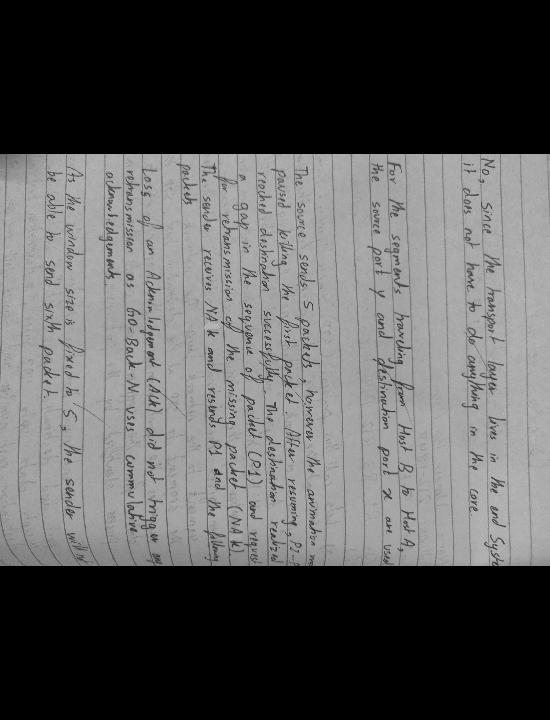 No, since the transport layer lives in the end Syste
it does not have to do anything in the core
For the segments traveling from Host B to Host A,
the source port y and destination port x are used
The source sends 5 packets, however the animation
paused killing the first packet. After resuming, P2-
reached destination successfully. The destination realized
a gap in the sequence of packet (P1) and reques
for retransmission of the missing packet (NAk)
The sender receives NAk and resends P1 and the following
packets
Loss of an Acknowledgement (Ack) did not trigger any
retransmission as GO-Back-N uses commulative
acknowledgements
As the window size is fixed to 5, the sender will n
be able to send sixth packet.